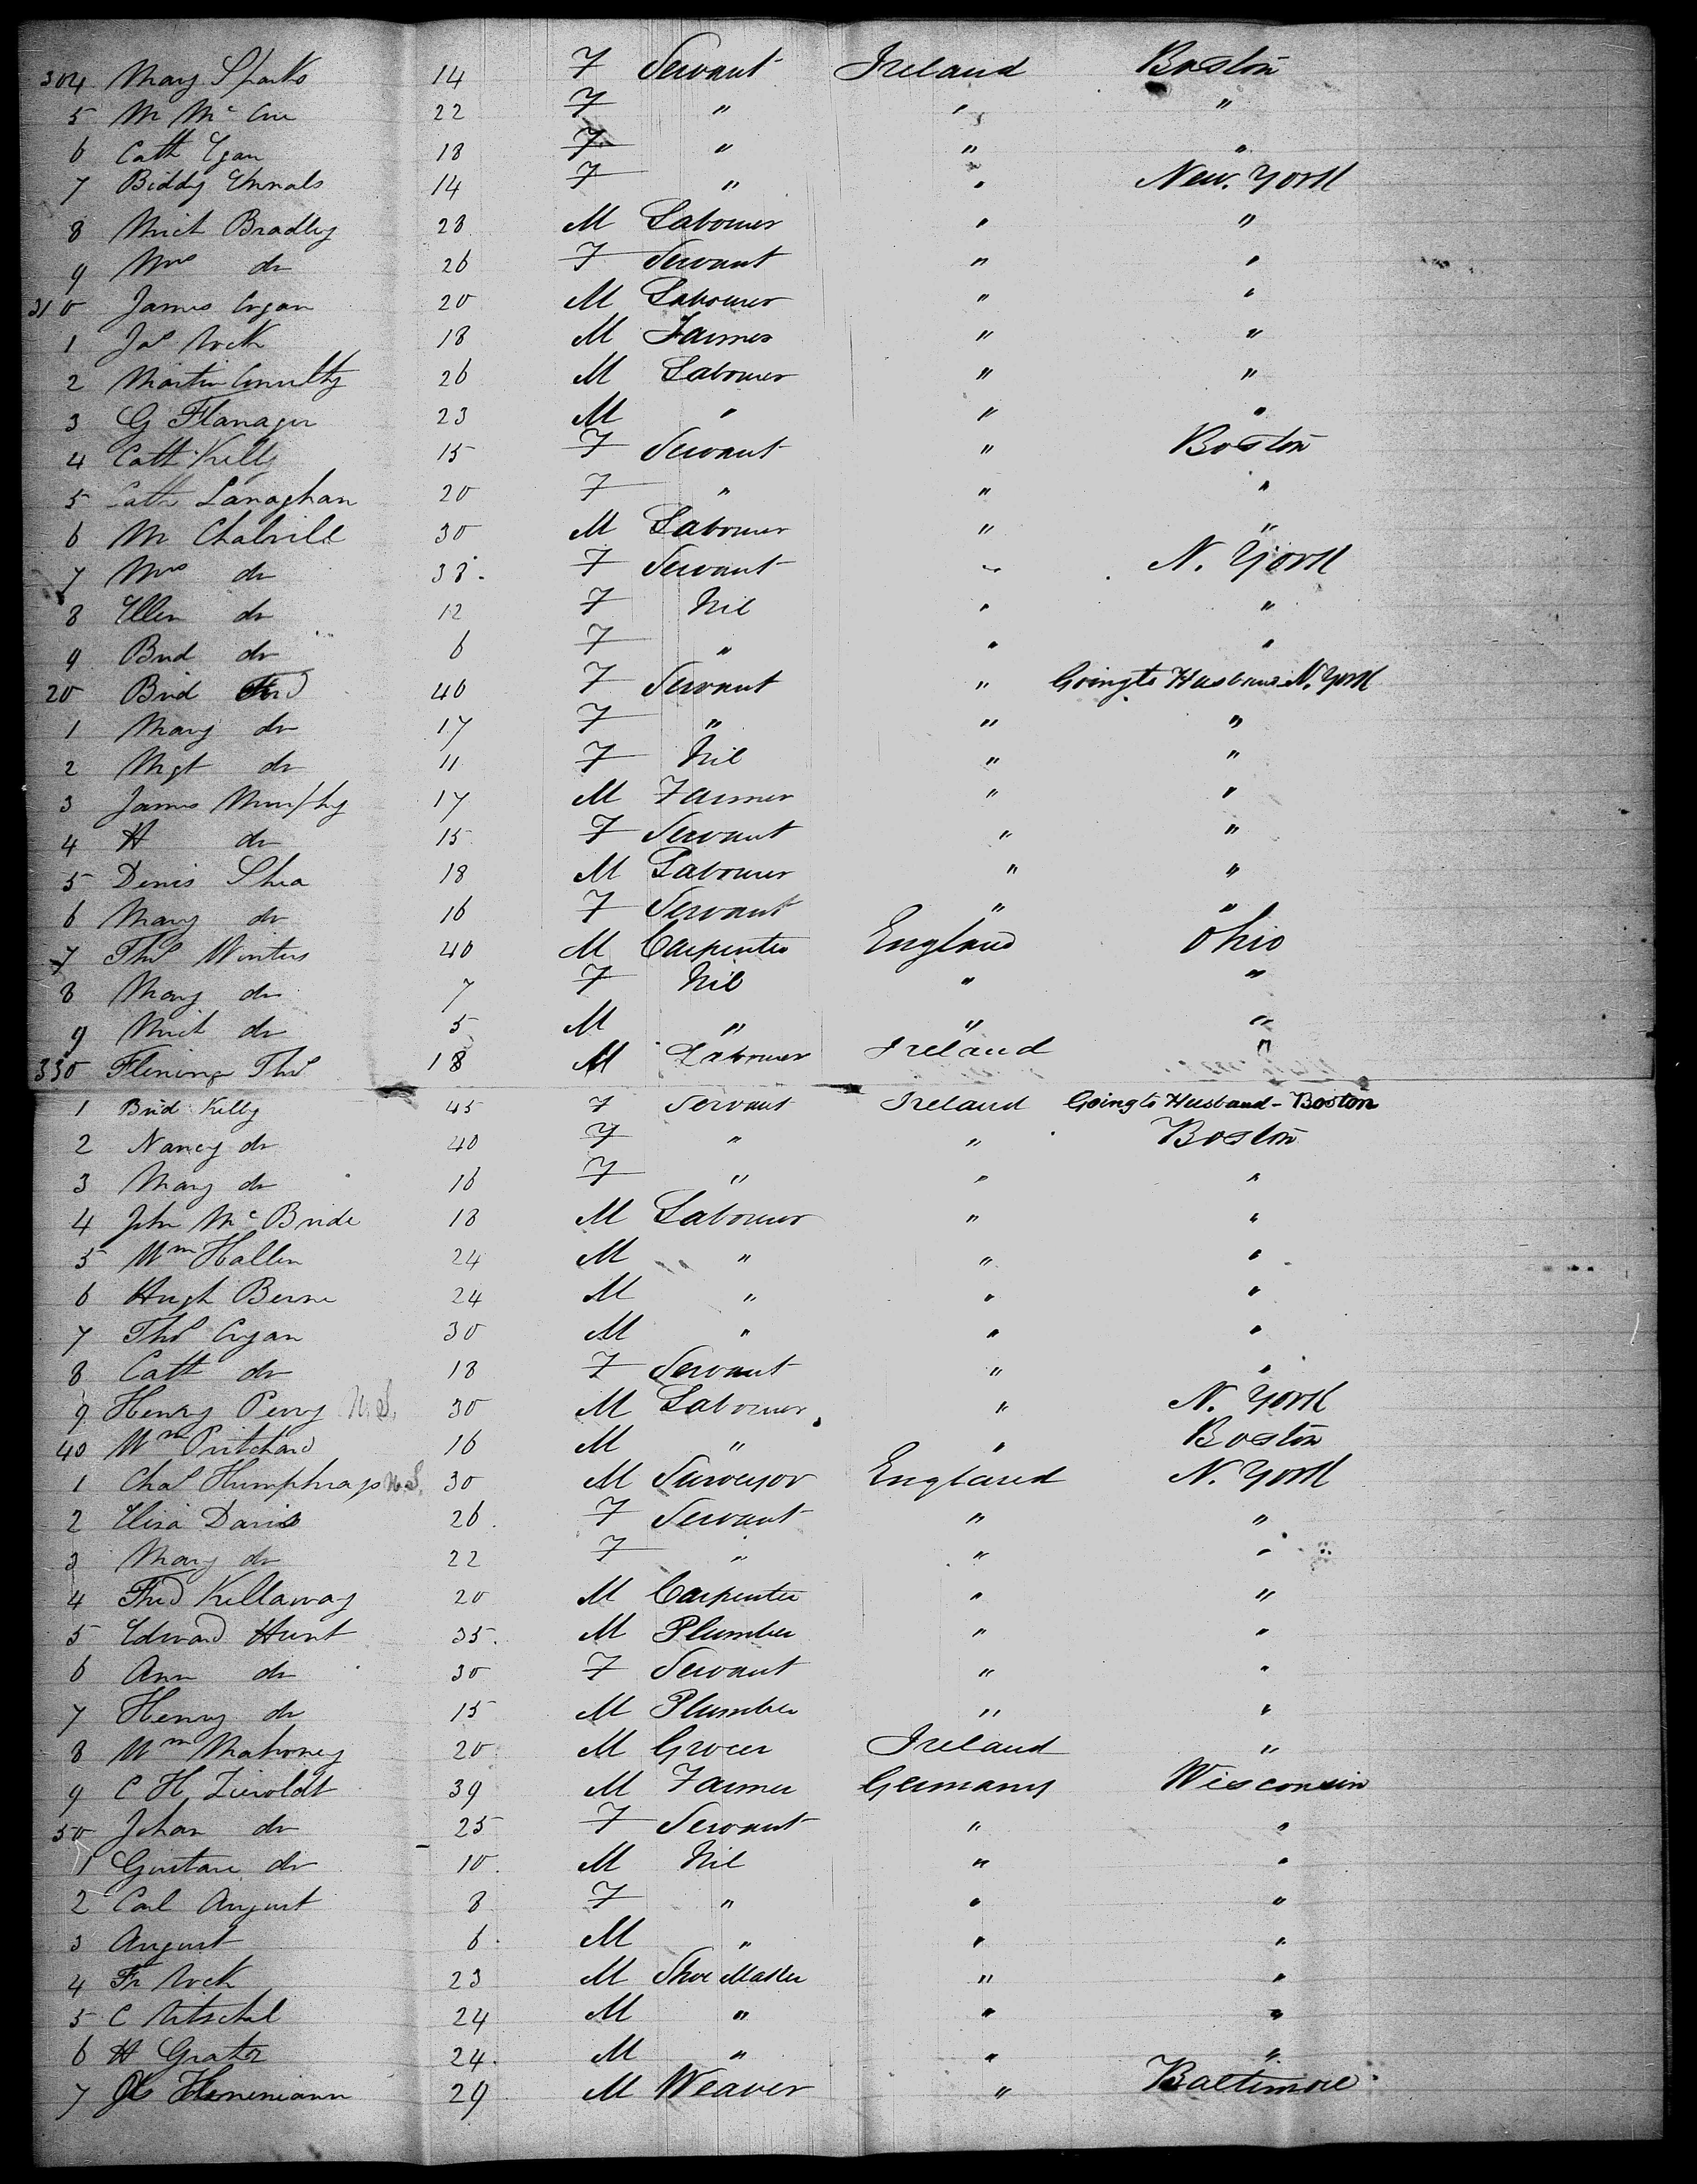 304 Mary Sparks 14 F Servant Ireland Boston
5 M McCue 22 F " " "
6 Cath Egan 18 F " " "
7 Biddy 14 F " " New York
8 Mich Bradley 28 M Labourer " "
9 Mrs do 26 F Servant " "
310 James Cryan 20 M Labourer " "
1 Jas 18 M Farmer " "
2 Martin 26 M Labourer " "
3 G Flanagan 23 M " " "
4 Cath Kelly 15 F Servant " Boston
5 Cath Lanaghan 20 F " " "
6 M 30 M Labourer " "
7 Mrs do 38 F Servant " N. York
8 Ellen do 12 F Nil " "
9 Brid do 6 F " " "
20 Brid 40 F Servant " Going to Husband N. York
1 Mary do 17 F " " "
2 Mgt do 11 F Nil " "
3 James Murphy 17 M Farmer " "
4 H do 15 F Servant " "
5 Denis Shea 18 M Labourer " "
6 Mary do 16 F Servant " "
7 Thos Winters 40 M Carpenter England Ohio
8 Mary do 7 F Nil " "
9 Mich do 5 M " " "
330 Fleming Thos 18 M Labourer Ireland "
1 Brid Kelly 45 F Servant Ireland Going to Husband - Boston
2 Nancy do 40 F " " Boston
3 Mary do 16 F " " "
4 John McBride 18 M Labourer " "
5 Wm Hallen 24 M " " "
6 Hugh Beirne 24 M " " "
7 Thos Cryan 30 M " " "
8 Cath do 18 F Servant " "
9 Henry Perry N.S. 30 M Labourer " N. York
40 Wm Pritchard 16 M " " Boston
1 Chas Humphrays N.S. 30 M Surveyor England N. York
2 Eliza Davis 26 F Servant " "
3 Mary do 22 F " " "
4 Fred Kellaway 20 M Carpenter " "
5 Edward Hunt 35 M Plumber " "
6 Ann do 30 F Servant " "
7 Henry do 15 M Plumber " "
8 Wm Mahoney 20 M Grocer Ireland "
9 C H Zieroldt 39 M Farmer Germany Wisconsin
50 Johan do 25 F Servant " "
1 Gustave do 10 M Nil " "
2 Carl August 8 F " " "
3 August 6 M " " "
4 Fr 23 M Shoe Maker " "
5 C 24 M " " "
6 H Grater 24 M " " "
7 29 M Weaver " Baltimore